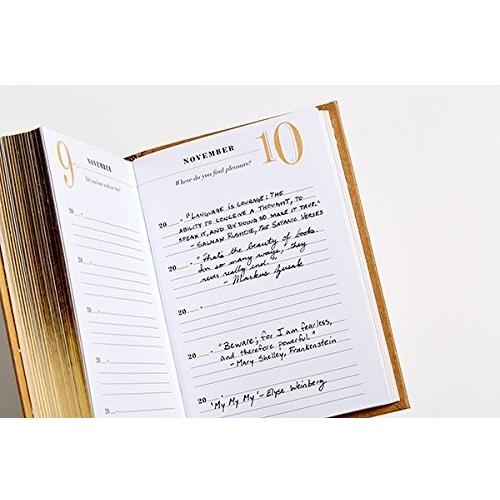 9
NOVEMBER
20
20
20
20
20
NOVEMBER
10
Where do you find pleasure?
20 "LANGUAGE IS COURAGE: THE
ABILITY TO CONCEIVE A THOUGHT, TO
SPEAK IT, AND BY DOING SO MAKE IT TRUE."
- SALMAN RUSHDIE, THE SATANIC VERSES
20 "That's the beauty of books
In so many ways, they
never really end."
- Markus Zusak
20
20 "Beware; for I am fearless,
and therefore powerful."
- Mary Shelley, Frankenstein
20 "My My My" - Elyse Weinberg